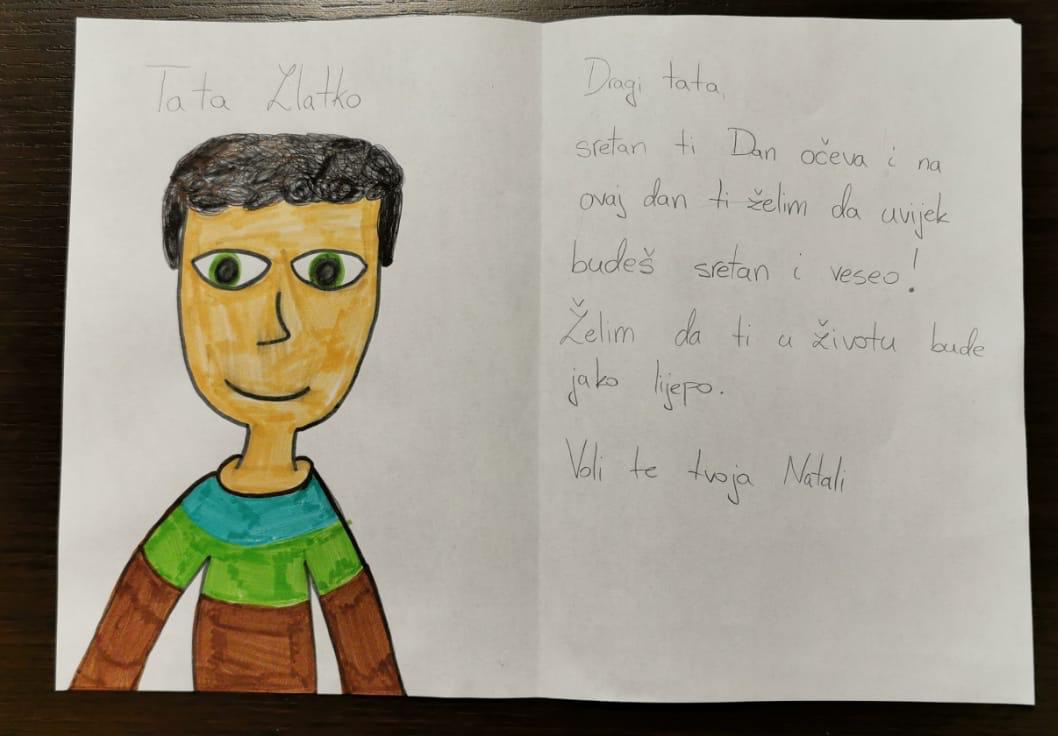 Tata Zlatko
Dragi tata,
sretan ti Dan očeva i na
ovaj dan ti želim da uvijek
budeš sretan i veseo!
Želim da ti u životu bude
jako lijepo.
Voli te tvoja Natali